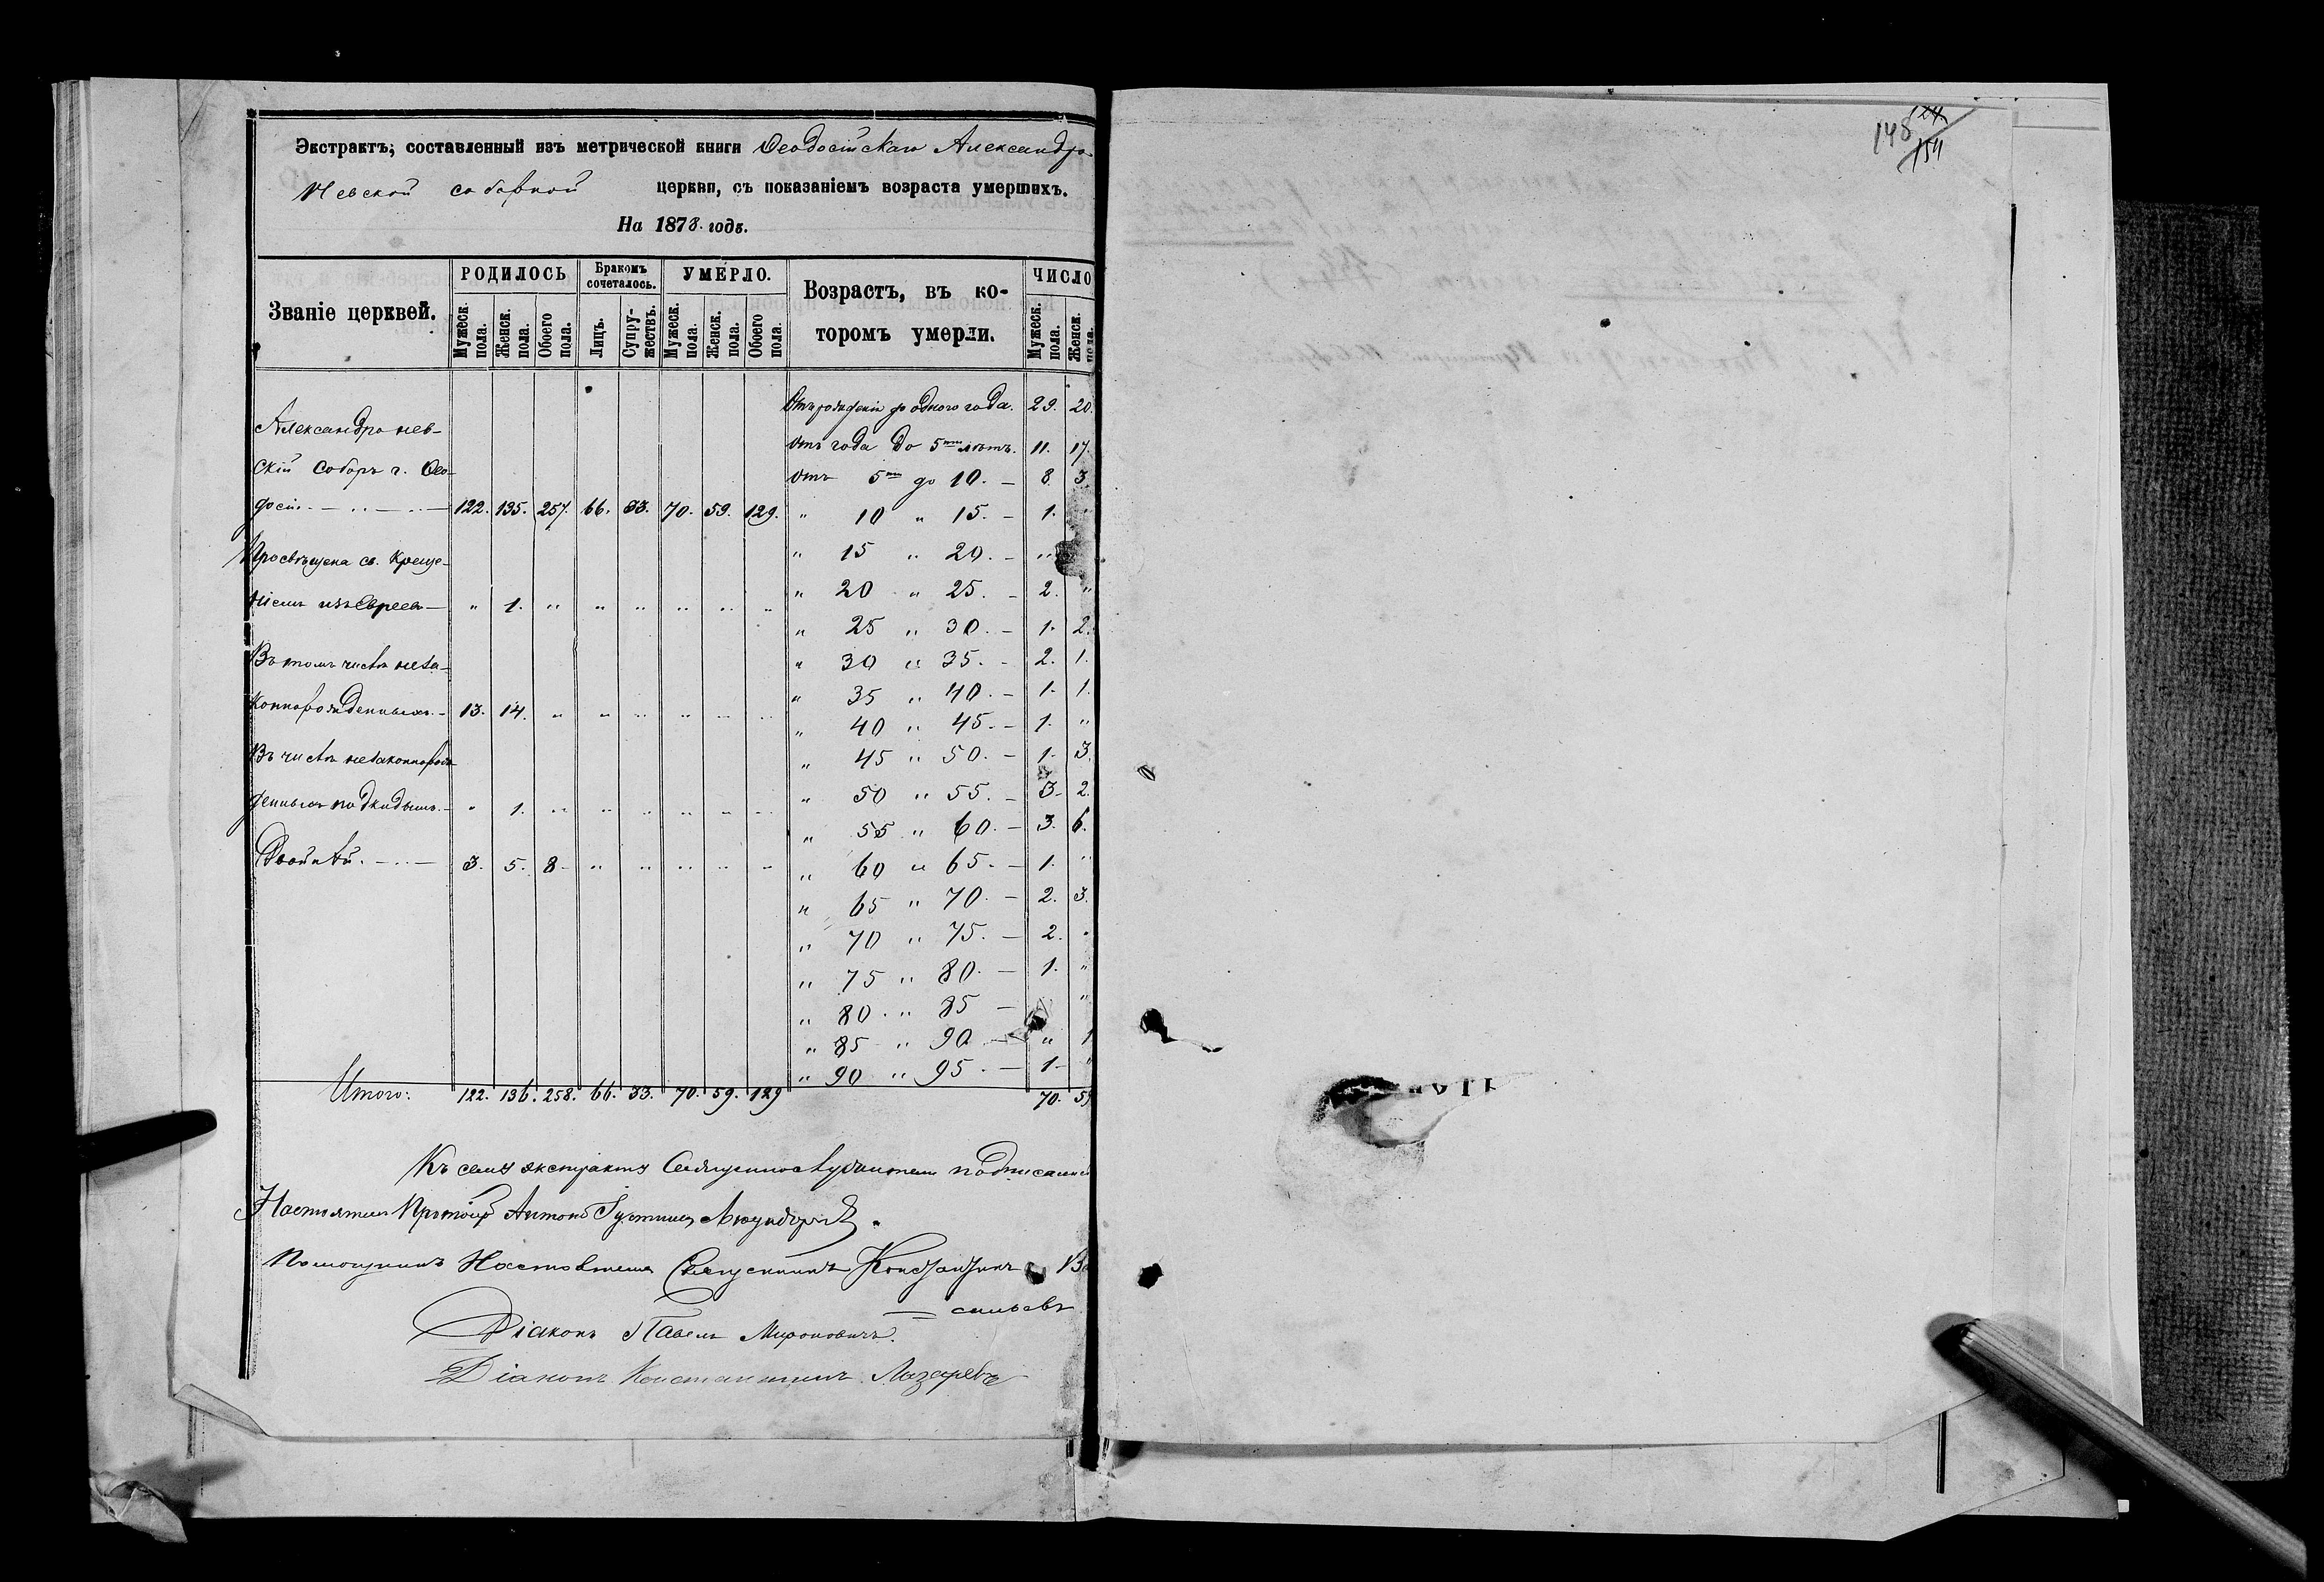 Экстрактъ, составленный изъ метрической книги Ѳеодосійскаго Александро-
Невской соборной церкви, съ показаніемъ возраста умершихъ.
На 1878. годъ.
Званіе церквей. РОДИЛОСЬ Бракомъ сочеталось. УМЕРЛО. Возрастъ, въ ко- ЧИСЛО
Мужеск. пола. Женск. пола. Обоего пола. Лицъ. Супру-жествъ. Мужеск. пола. Женск. пола. Обоего пола. торомъ умерли. Мужеск. пола. Женск. пола.
Отъ рожденія до одного года. 29. 20.
Александронев-
отъ года до 5ти лѣтъ. 11. 17.
скій соборъ г. Ѳео-
отъ 5ти до 10. — 8. 3.
досіи 122. 135. 257. 66. 33. 70. 59. 129.
" 10 " 15. — 1.
" 15 " 20. — "
Просвѣщена св. Креще-
" 20 " 25. — 2. "
ніемъ изъ Евреевъ — " 1. " " " " " "
" 25 " 30. — 1. 2.
Въ томъ числѣ неза-
" 30 " 35. — 2. 1.
коннорожденныхъ. — 13. 14. " " " " " "
" 35 " 40. — 1. 1.
" 40 " 45. — 1. "
Въ числѣ незаконнорож-
" 45 " 50. — 1. 3.
денныхъ подкидышъ. — " 1. " " " " " "
" 50 " 55. — 3. 2.
" 55 " 60. — 3. 6.
Двойней. — 3. 5. 8. " " " " "
" 60 " 65. — 1. "
" 65 " 70. — 2. 3.
" 70 " 75. — 2. "
" 75 " 80. — 1. "
" 80. " 85 — "
" 85 " 90 — " 1
" 90 " 95. — 1. "
Итого: 122. 136. 258. 66. 33. 70. 59. 129 70. 59
Къ сему экстракту
Настоятель Антоній
Помощникъ Настоятеля Священникъ Константинъ Ва-
сильевъ
Діаконъ Павелъ Мироновичъ.
Діаконъ Константинъ Лазаревъ
148 124 154